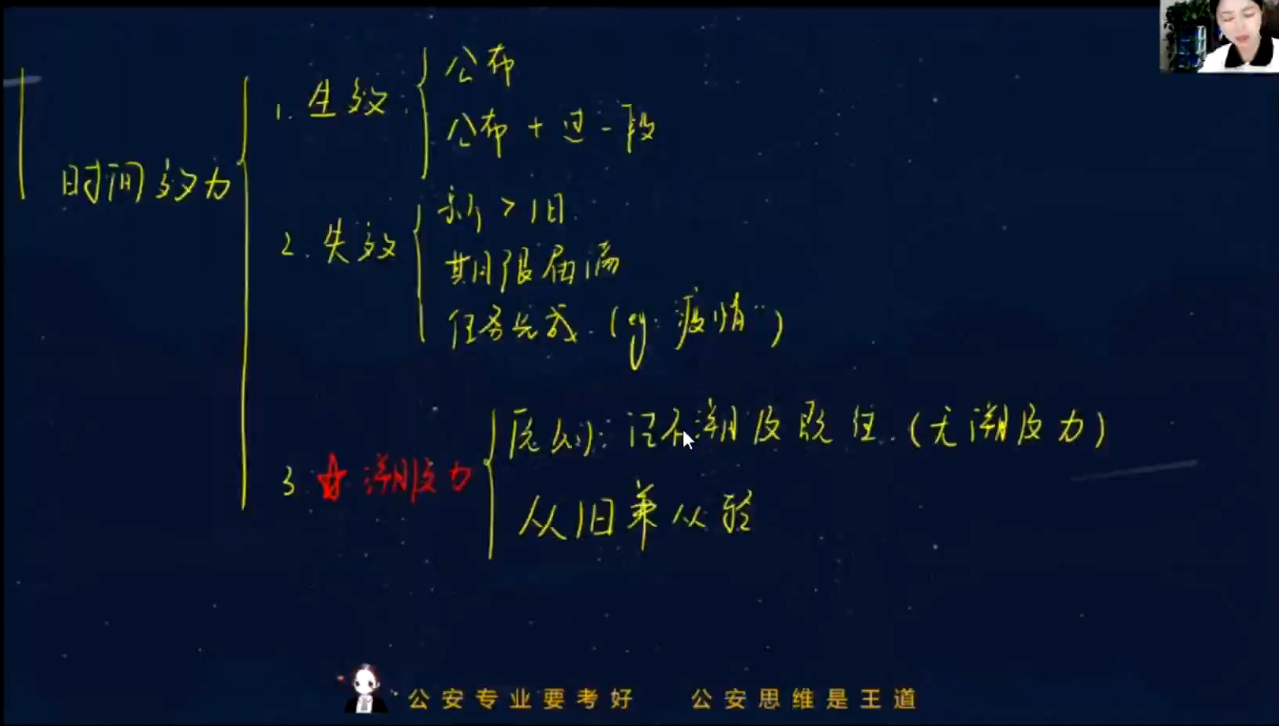 时间效力
1. 生效:
公布
公布 + 过一段
2. 失效
新 > 旧
期限届满
任务完成. (eg: 疫情¨)
3. ☆ 溯及力
原则: 法不溯及既往. (无溯及力)
从旧兼从轻
公安专业要考好 公安思维是王道